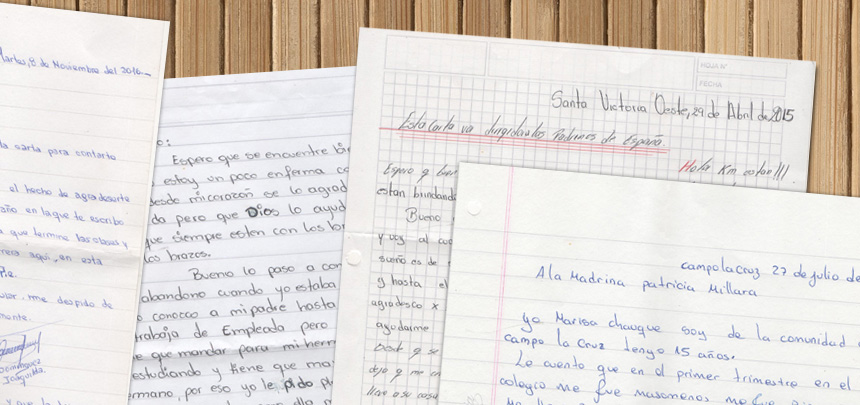 Martes, 8 de Noviembre del 2016.-
la carta para contarte
el hecho de agradecerte
año en la que te escribo
que termine las clases y
aqui, en esta
me despido de
Dominguez
Joaquina.
Y que la
Espero que se encuentre bie
estoy un poco enferma
desde mi corazón se lo agrad
da pero que Dios lo ayud
que siempre esten con los br
los brazos.
Bueno lo paso a con
abandono cuando yo estaba
conosco a mi padre hasta
trabaja de Empleada pero
e que mandar para mi herm
estudiando y tiene que ma
rmano, por eso yo le pido
HOJA Nº
FECHA
Santa Victoria Oeste, 29 de Abril de 2015
Esta carta va dirigida a los Padrinos de España.
Hola Km estan!!!
Espero q
estan brindand
Bueno
y voy al
sueño es de
y hasta el
agradesco x
ayudarme
dejo q me
campo la Cruz 27 de julio de
A la Madrina patricia Millara
yo Marisa chauque soy de la comunidad
campo la Cruz tengo 15 años.
Le cuento que en el primer trimestre en el
colegio me fue masomenos me fue